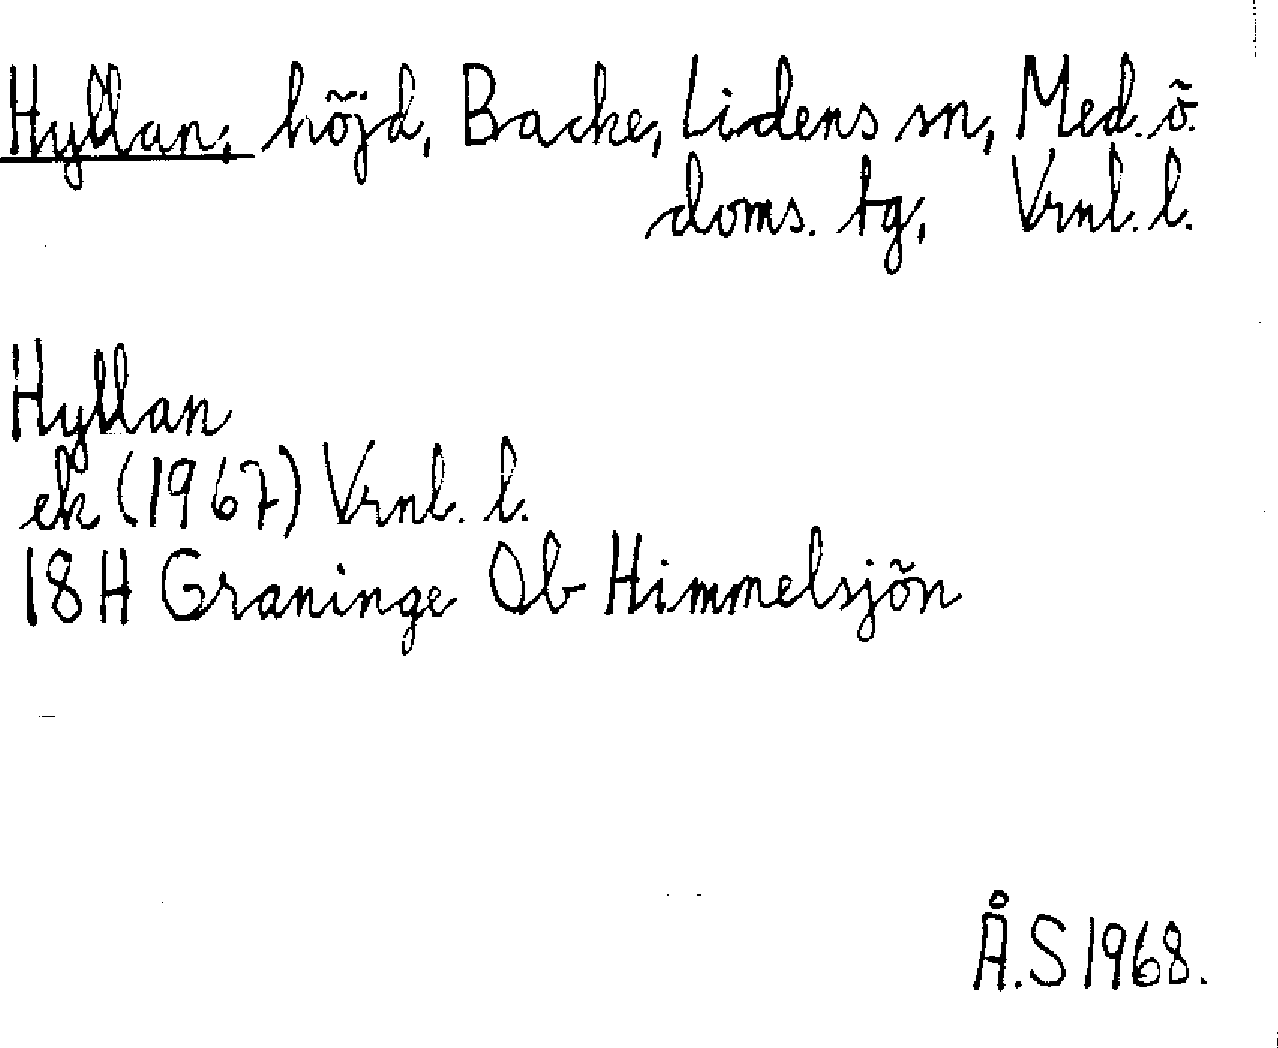 Hyllan, höjd, Backe, Lidens sn, Med. ö.
doms. tg, Vrnl. l.
Hyllan
ek (1967) Vrnl. l.
18H Graninge Ob Himmelsjön
Å.S 1968.